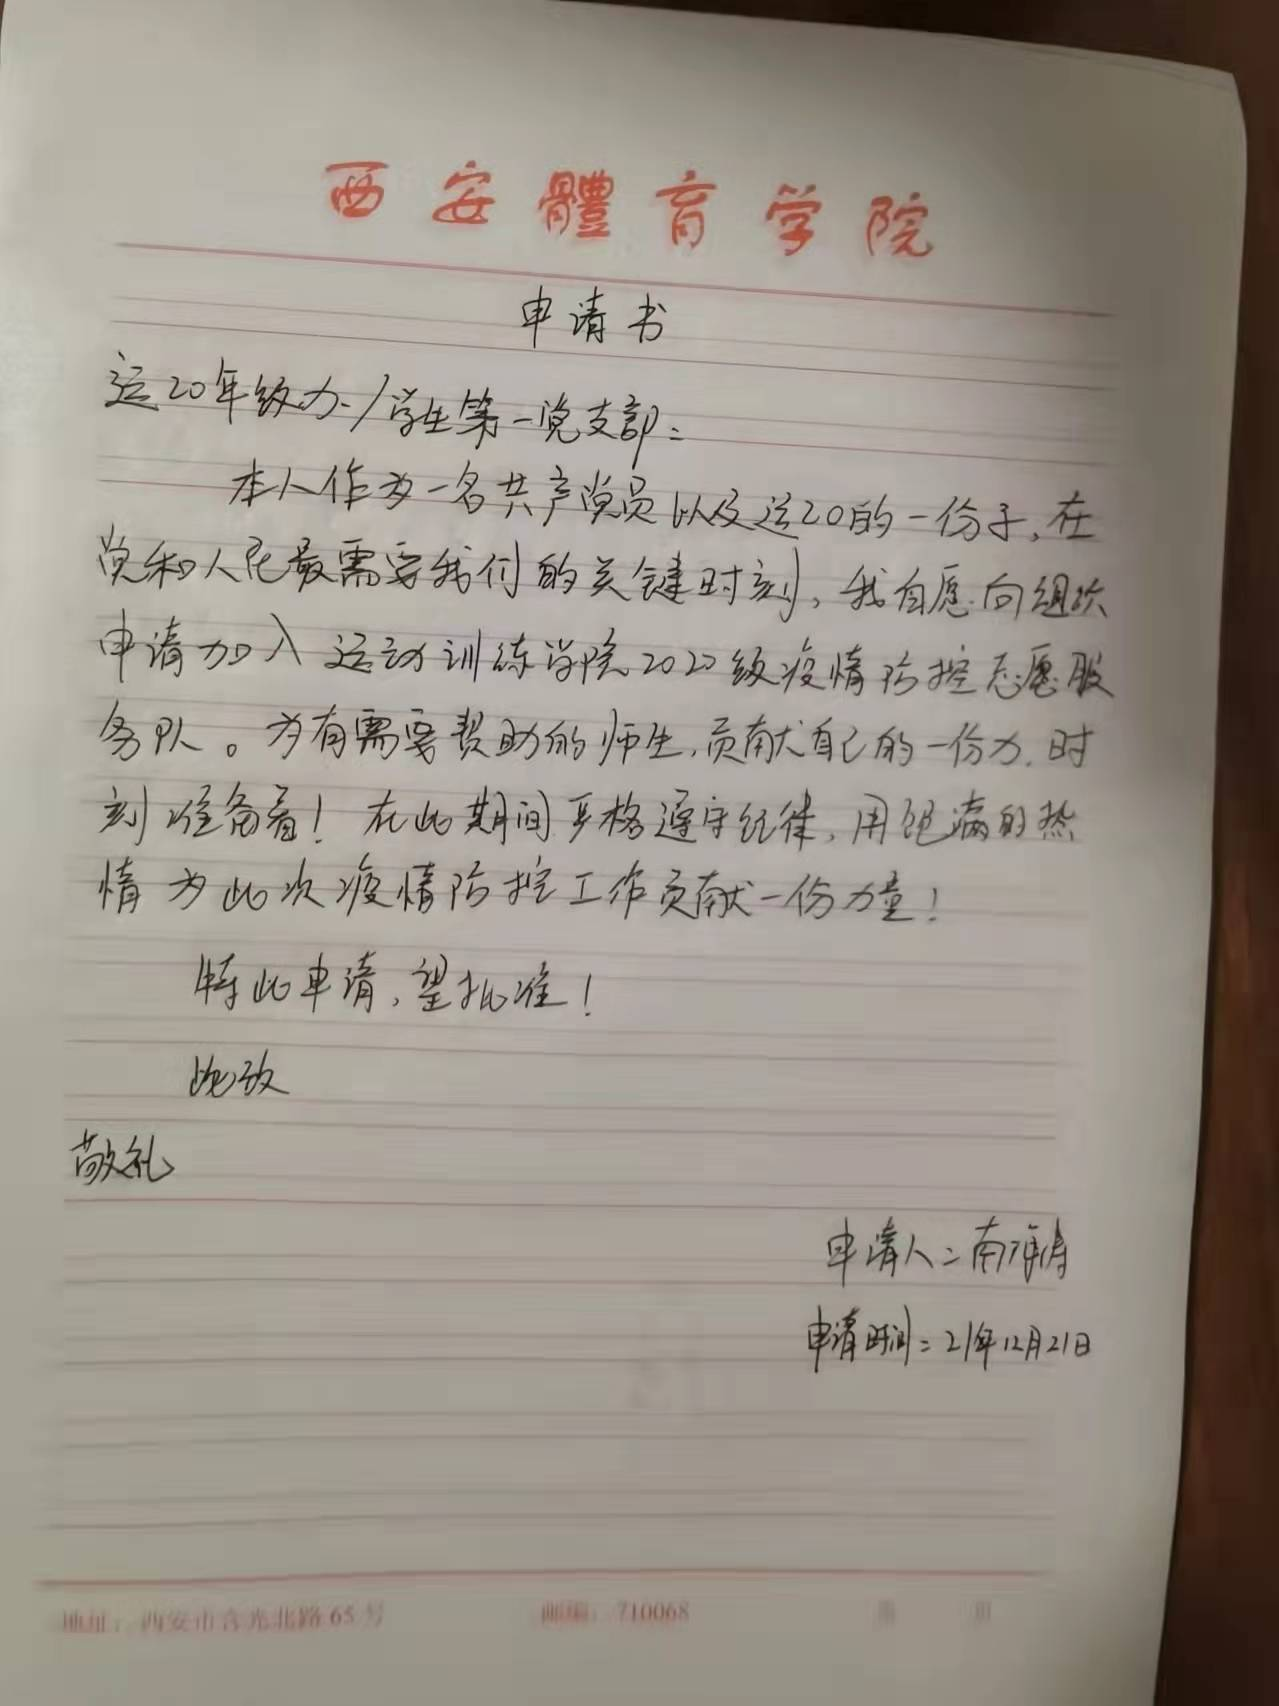 西安體育学院
申请书
运20年级办/学生第一党支部:
本人作为一名共产党员以及运20的一份子,在
党和人民最需要我们的关键时刻,我自愿向组织
申请加入运动训练学院2020级疫情防控志愿服
务队。为有需要帮助的师生,贡献自己的一份力,时
刻准备着!在此期间严格遵守纪律,用饱满的热
情为此次疫情防控工作贡献一份力量!
特此申请,望批准!
此致
敬礼
申请人:南海涛
申请时间:21年12月21日
地址:西安市含光北路65号 邮编:710068 第 页